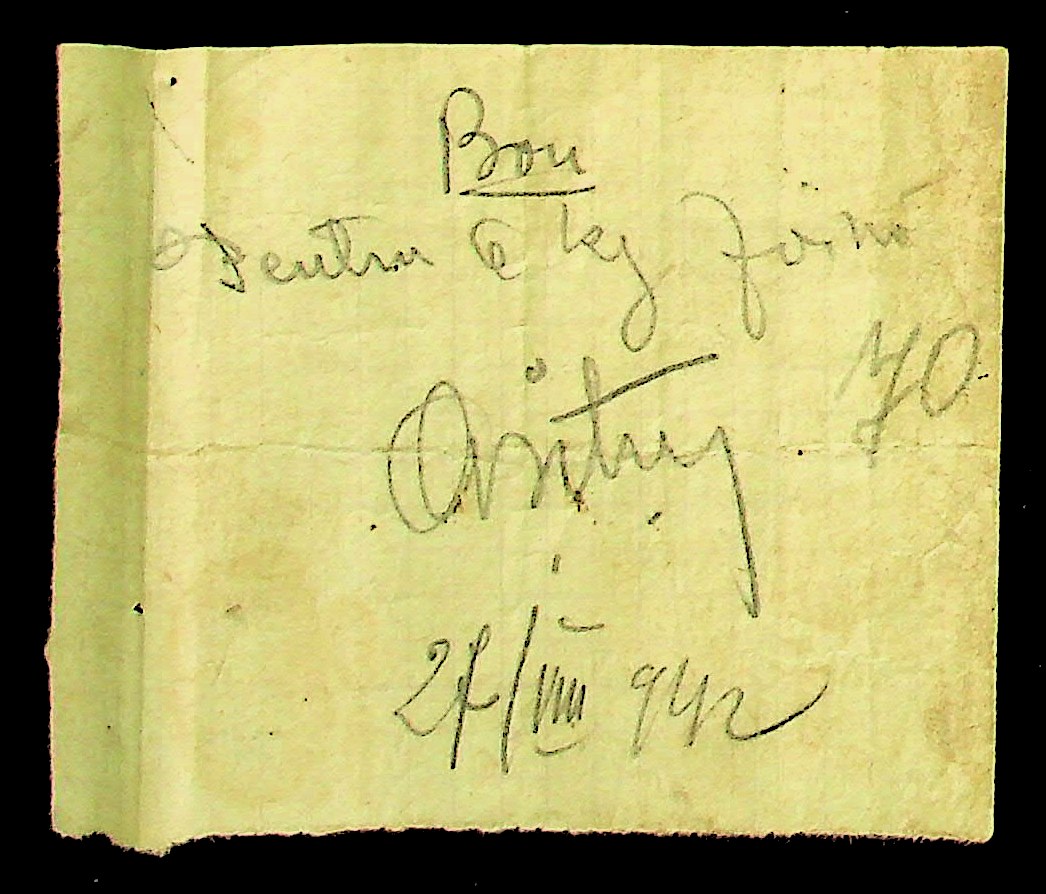 Bon
Pentru 6 kg făină
70
27/VIII 942